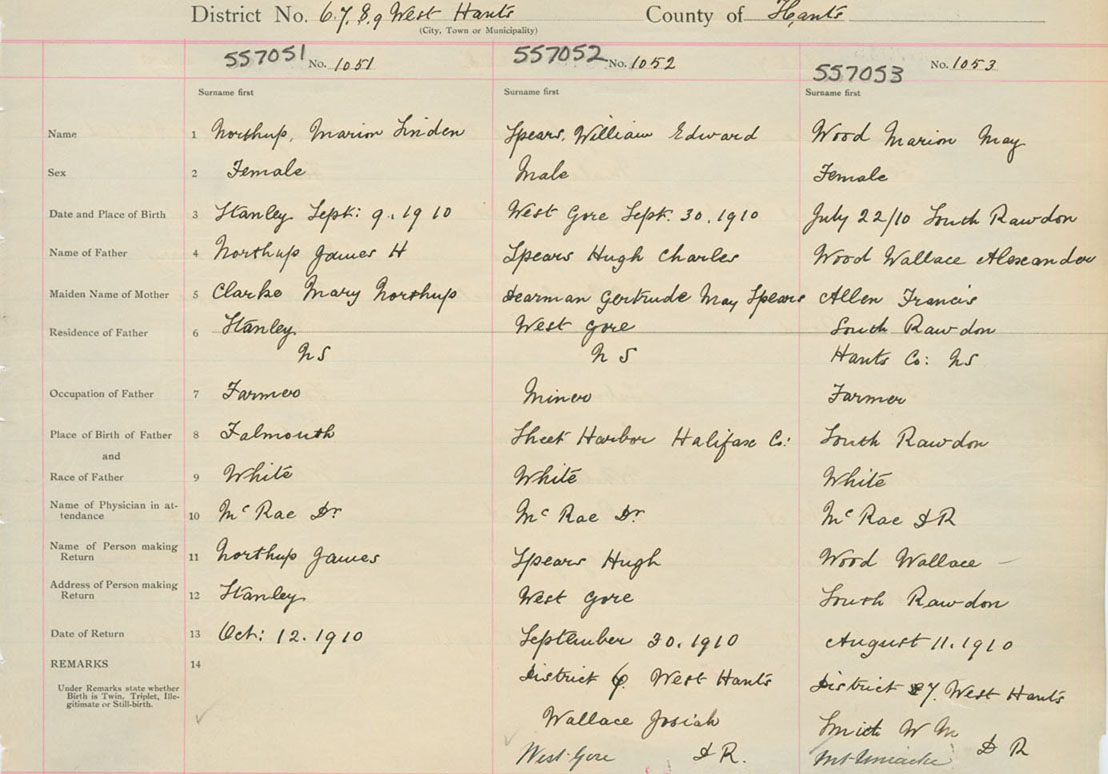 District No. 6.7.8.9 West Hants County of Hants
(City, Town or Municipality)
557051 No. 1051 557052 No. 1052 557053 No. 1053
Surname first Surname first Surname first
Name 1 Northup, Marion Linden Spears, William Edward Wood Marion May
Sex 2 Female Male Female
Date and Place of Birth 3 Stanley Sept: 9. 1910 West Gore Sept. 30. 1910 July 22/10 South Rawdon
Name of Father 4 Northup James H Spears Hugh Charles Wood Wallace Alexander
Maiden Name of Mother 5 Clarke Mary Northup Dearman Gertrude May Spears Allen Francis
Residence of Father 6 Stanley West Gore South Rawdon
NS NS Hants Co: NS
Occupation of Father 7 Farmer Miner Farmer
Place of Birth of Father 8 Falmouth Sheet Harbor Halifax Co: South Rawdon
and
Race of Father 9 White White White
Name of Physician in at-
tendance 10 McRae Dr McRae Dr. McRae DR
Name of Person making
Return 11 Northup James Spears Hugh Wood Wallace
Address of Person making
Return 12 Stanley West Gore South Rawdon
Date of Return 13 Oct: 12. 1910 September 30. 1910 August 11. 1910
REMARKS 14
Under Remarks state whether
Birth is Twin, Triplet, Ille-
gitimate or Still-birth.
District 6. West Hants District 7. West Hants
Wallace Josiah Smith W M
West Gore D R. Mt Uniacke D R